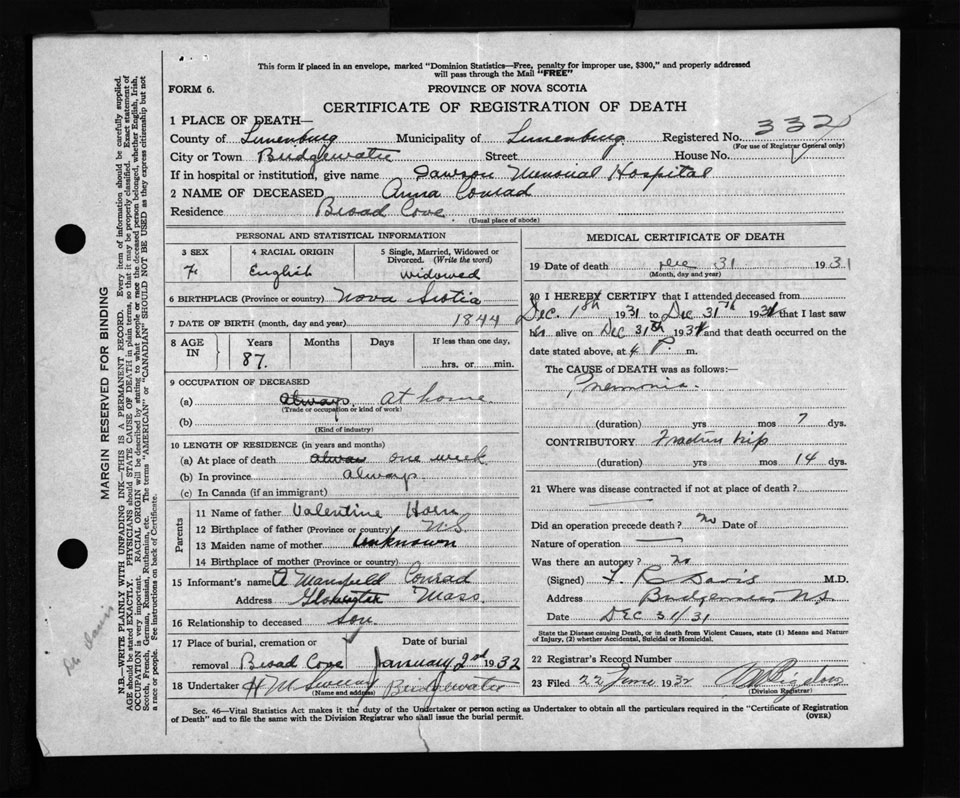 This form if placed in an envelope, marked "Dominion Statistics—Free, penalty for improper use, $300," and properly addressed
will pass through the Mail "FREE"
FORM 6.
PROVINCE OF NOVA SCOTIA
CERTIFICATE OF REGISTRATION OF DEATH
1 PLACE OF DEATH—
County of Lunenburg Municipality of Lunenburg Registered No. 332
(For use of Registrar General only)
City or Town Bridgewater Street House No.
If in hospital or institution, give name Dawson Memorial Hospital
2 NAME OF DECEASED Anna Conrad
Residence Broad Cove
(Usual place of abode)
PERSONAL AND STATISTICAL INFORMATION
3 SEX 4 RACIAL ORIGIN 5 Single, Married, Widowed or
Divorced. (Write the word)
F English widowed
6 BIRTHPLACE (Province or country) Nova Scotia
7 DATE OF BIRTH (month, day and year) 1844
8 AGE IN Years Months Days If less than one day,
87. hrs. or min.
9 OCCUPATION OF DECEASED
(a) always at home.
(Trade or occupation or kind of work)
(b)
(Kind of industry)
10 LENGTH OF RESIDENCE (in years and months)
(a) At place of death always one week
(b) In province always
(c) In Canada (if an immigrant)
Parents
11 Name of father Valentine Horn
12 Birthplace of father (Province or country) N.S
13 Maiden name of mother Unknown
14 Birthplace of mother (Province or country)
15 Informant's name A Mansfield Conrad
Address Gloucester Mass.
16 Relationship to deceased son
17 Place of burial, cremation or Date of burial
removal Broad Cove January 2nd 1932
18 Undertaker H M Bridgewater
(Name and address)
MEDICAL CERTIFICATE OF DEATH
19 Date of death Dec 31 1931
(Month, day and year)
20 I HEREBY CERTIFY that I attended deceased from
Dec. 1 1931 to Dec 31th 1931 that I last saw
h alive on Dec 31th 1931 and that death occurred on
date stated above, at 4 P. m.
The CAUSE of DEATH was as follows:—
Pnemonia.
(duration) yrs mos 7 dys.
CONTRIBUTORY Fracture hip
(duration) yrs mos 14 dys.
21 Where was disease contracted if not at place of death?
Did an operation precede death? no Date of
Nature of operation
Was there an autopsy? No
(Signed) F. R Davis M.D.
Address Bridgewater N.S
Date DEC 31/31
State the Disease causing Death, or in death from Violent Causes, state (1) Means and Nature
of Injury, (2) whether Accidental, Suicidal or Homicidal.
22 Registrar's Record Number
23 Filed 22 June 1932
(Division Registrar)
Sec. 46—Vital Statistics Act makes it the duty of the Undertaker or person acting as Undertaker to obtain all the particulars required in the "Certificate of Registration
of Death" and to file the same with the Division Registrar who shall issue the burial permit.
(OVER)
MARGIN RESERVED FOR BINDING
N.B.—WRITE PLAINLY WITH UNFADING INK—THIS IS A PERMANENT RECORD. Every item of information should be carefully supplied.
AGE should be stated EXACTLY. PHYSICIANS should STATE CAUSE OF DEATH in plain terms, so that it may be properly classified. Exact statement of
OCCUPATION is very important. RACIAL ORIGIN will be described by stating to what people or race the deceased person belonged, whether English, Irish,
Scotch, French, German, Russian, Ruthenian, etc. The terms "AMERICAN" or "CANADIAN" SHOULD NOT BE USED as they express citizenship but not
a race or people. See instructions on back of Certificate.